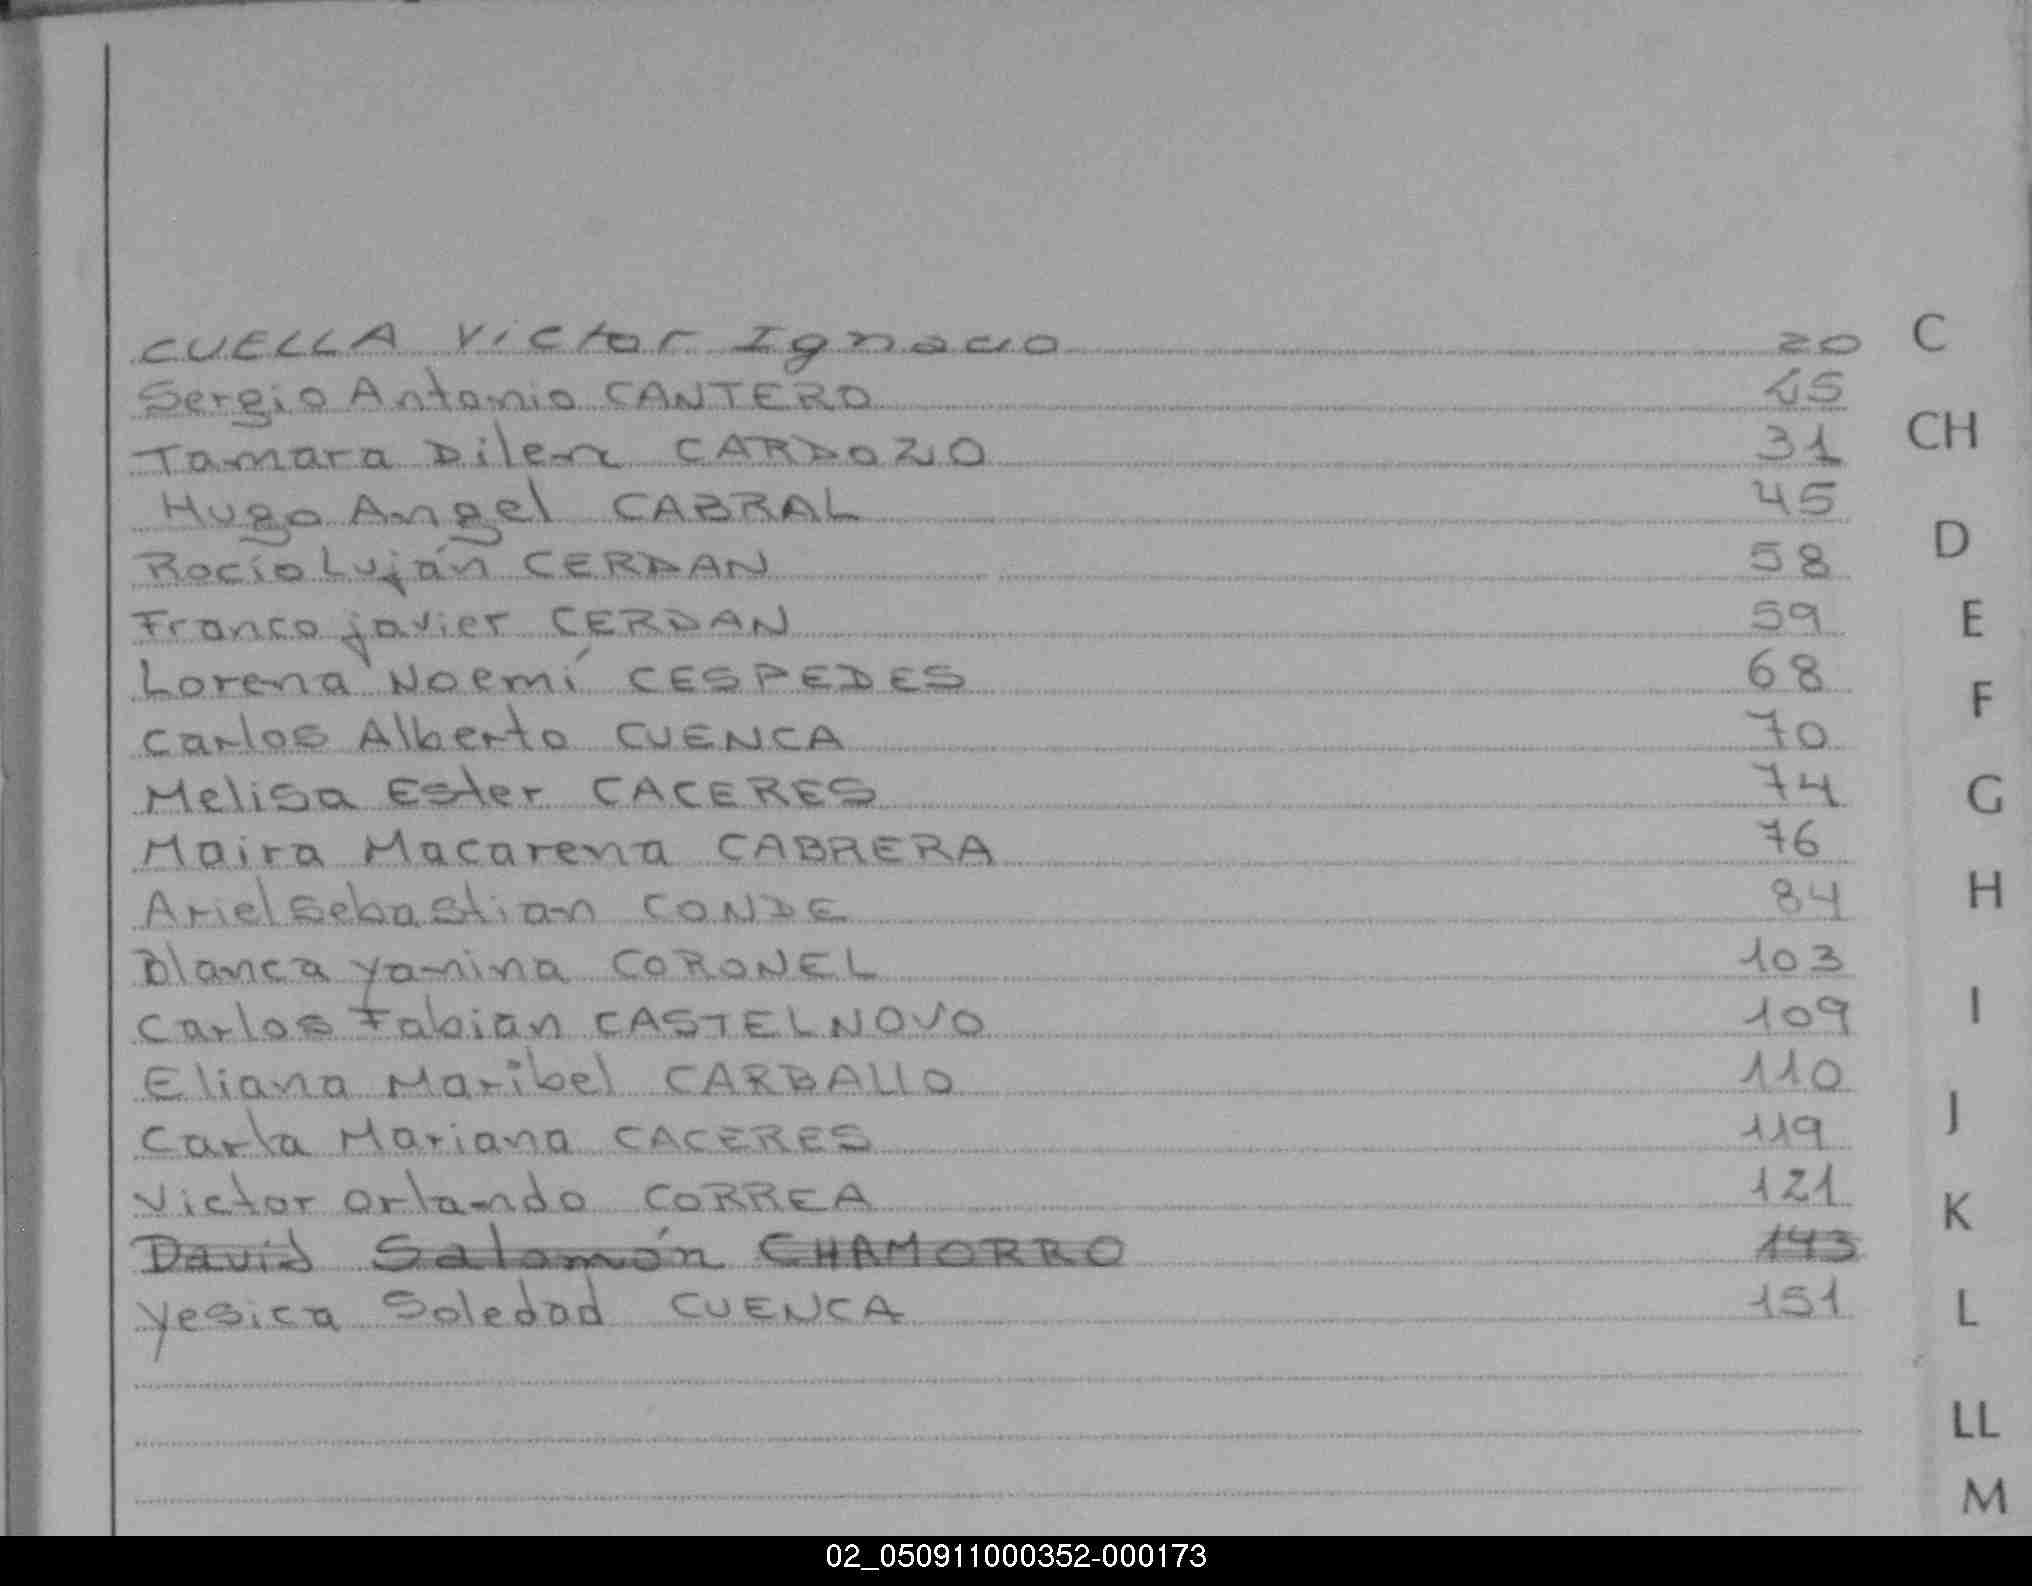 CUELLA Victor Ignacio 20
Sergio Antonio CANTERO
Tamara Dilen CARDOZO 31
Hugo Angel CABRAL 45
Rocío Luján CERDAN 58
Franco javier CERDAN 59
Lorena Noemí CESPEDES 68
Carlos Alberto CUENCA 70
Melisa Ester CACERES 74
Maira Macarena CABRERA 76
Ariel Sebastian CONDE 84
Blanca yanina CORONEL 103
Carlos Fabián CASTELNOVO 109
Eliana Maribel CARBALLO 110
Carla Mariana CACERES 119
Victor Orlando CORREA 121
David Salomón CHAMORRO 143
yesica Soledad CUENCA 151
C
CH
D
E
F
G
H
I
J
K
L
LL
M
02_050911000352-000173